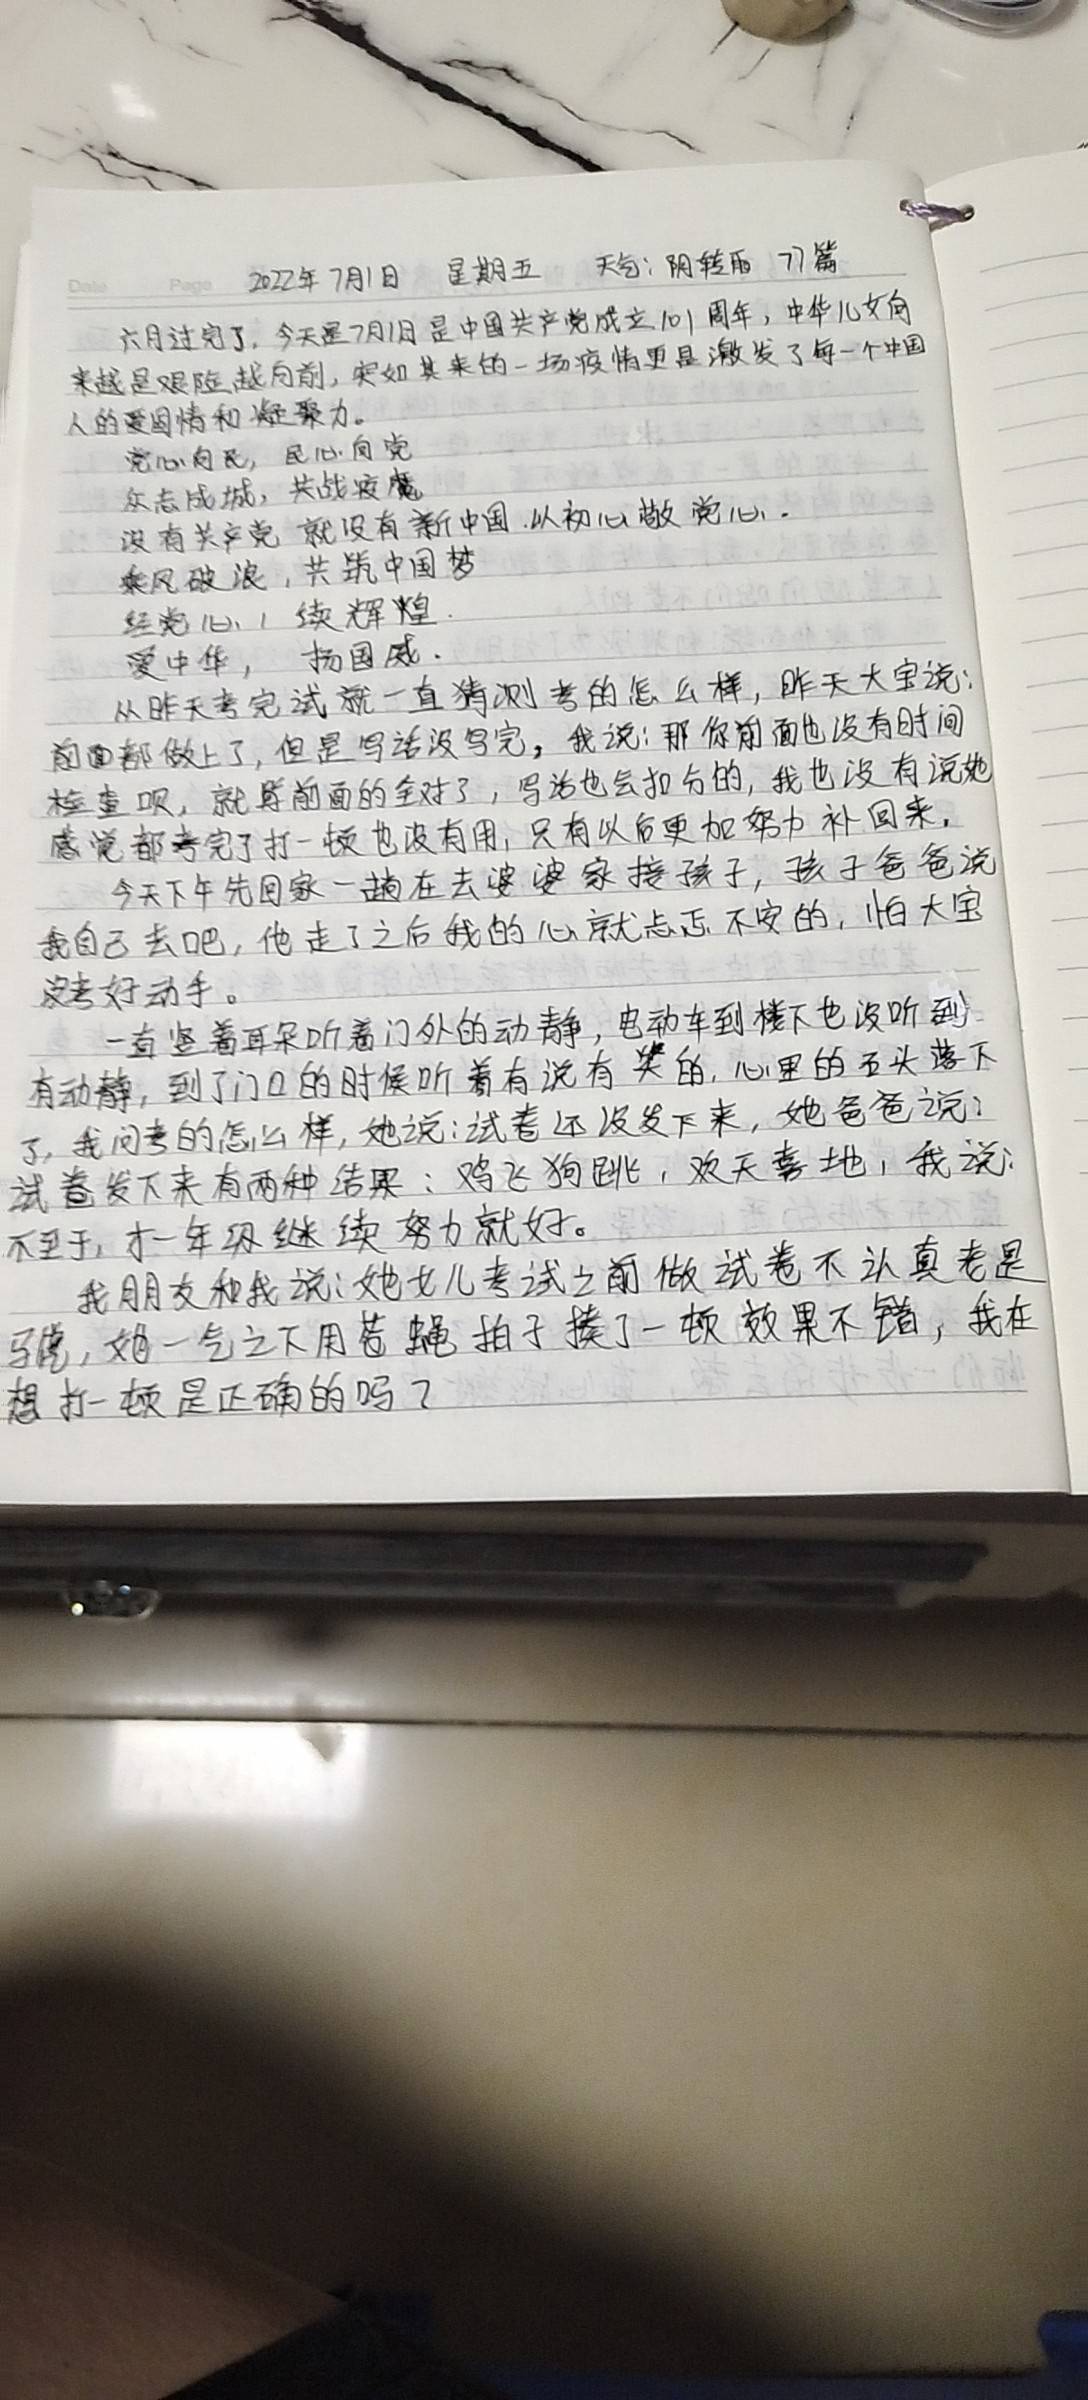 Date Page 2022年7月1日 星期五 天气：阴转雨 77篇
六月过完了，今天是7月1日是中国共产党成立101周年，中华儿女向
来越是艰险越向前，突如其来的一场疫情更是激发了每一个中国
人的爱国情和凝聚力。
党心向民，民心向党
众志成城，共战疫魔
没有共产党 就没有新中国.以初心敬党心.
乘风破浪，共筑中国梦
经党心，续辉煌.
爱中华， 扬国威.
从昨天考完试就一直猜测考的怎么样，昨天大宝说：
前面都做上了，但是写话没写完，我说：那你前面也没有时间
检查呗，就算前面的全对了，写话也会扣分的，我也没有说她
感觉都考完了打一顿也没有用，只有以后更加努力补回来，
今天下午先回家一趟在去婆婆家接孩子，孩子爸爸说
我自己去吧，他走了之后我的心就忐忑不安的，怕大宝
没考好动手。
一直竖着耳朵听着门外的动静，电动车到楼下也没听到
有动静，到了门口的时候听着有说有笑的，心里的石头落下
了，我问考的怎么样，她说：试卷还没发下来，她爸爸说：
试卷发下来有两种结果：鸡飞狗跳，欢天喜地，我说：
不至于，才一年级继续努力就好。
我朋友和我说：她女儿考试之前做试卷不认真老是
马虎，她一气之下用苍蝇拍子揍了一顿效果不错，我在
想打一顿是正确的吗？